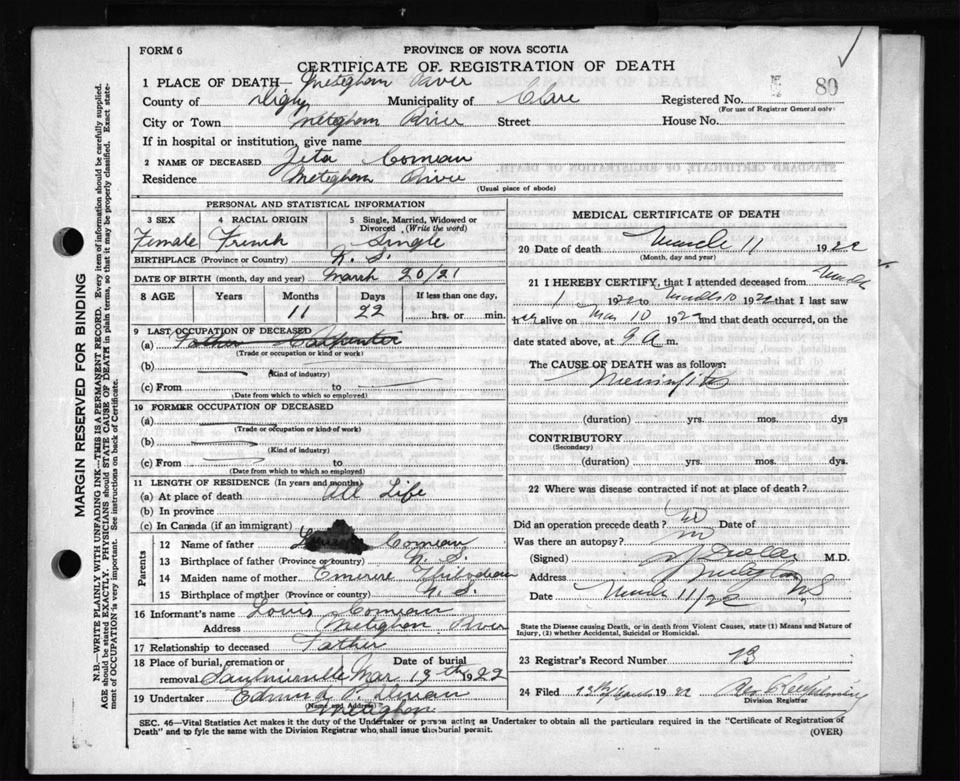 FORM 6
PROVINCE OF NOVA SCOTIA
CERTIFICATE OF REGISTRATION OF DEATH
1 PLACE OF DEATH— Meteghan River
County of Digby Municipality of Clare Registered No. 80
(For use of Registrar General only)
City or Town Meteghan River Street House No.
If in hospital or institution, give name
2 NAME OF DECEASED Zeta Comeau
Residence Meteghan River
(Usual place of abode)
PERSONAL AND STATISTICAL INFORMATION
3 SEX 4 RACIAL ORIGIN 5 Single, Married, Widowed or Divorced (Write the word)
Female French Single
BIRTHPLACE (Province or Country) N. S.
DATE OF BIRTH (month, day and year) March 20/21
8 AGE Years Months Days If less than one day,
11 22 hrs. or min.
9 LAST OCCUPATION OF DECEASED
(a) Father Carpenter
(Trade or occupation or kind or work)
(b)
(Kind of industry)
(c) From to
(Date from which to which so employed)
10 FORMER OCCUPATION OF DECEASED
(a)
(Trade or occupation or kind of work)
(b)
(Kind of industry)
(c) From to
(Date from which to which so employed)
11 LENGTH OF RESIDENCE (In years and months)
(a) At place of death All Life
(b) In province
(c) In Canada (if an immigrant)
Parents
12 Name of father Comeau
13 Birthplace of father (Province or country) N. S.
14 Maiden name of mother Thibodeau
15 Birthplace of mother (Province or country) N. S.
16 Informant's name Louis Comeau
Address Meteghan River
17 Relationship to deceased Father
18 Place of burial, cremation or removal Saulnierville Date of burial Mar 13th 1922
19 Undertaker Edmund
(Name and Address) Meteghan
MEDICAL CERTIFICATE OF DEATH
20 Date of death March 11 1922
(Month, day and year)
21 I HEREBY CERTIFY, that I attended deceased from March
1 1922 to March 10 1922 that I last saw
her alive on Mar 10 1922 and that death occurred, on the
date stated above, at 9 A m.
The CAUSE OF DEATH was as follows:
Meningitis
(duration) yrs. mos. dys
CONTRIBUTORY
(Secondary)
(duration) yrs. mos. dys.
22 Where was disease contracted if not at place of death?
Did an operation precede death? no Date of
Was there an autopsy? no
(Signed) M.D.
Address Meteghan N S
Date March 11/22
State the Disease causing Death, or in death from Violent Causes, state (1) Means and Nature of
Injury, (2) whether Accidental, Suicidal or Homicidal.
23 Registrar's Record Number 13
24 Filed 13th March 1922
Division Registrar
SEC. 46—Vital Statistics Act makes it the duty of the Undertaker or person acting as Undertaker to obtain all the particulars required in the "Certificate of Registration of
Death" and to fyle the same with the Division Registrar who shall issue the burial permit.
(OVER)
MARGIN RESERVED FOR BINDING
N.B.—WRITE PLAINLY WITH UNFADING INK—THIS IS A PERMANENT RECORD. Every item of information should be carefully supplied.
AGE should be stated EXACTLY. PHYSICIANS should STATE CAUSE OF DEATH in plain terms, so that it may be properly classified. Exact state-
ment of OCCUPATION is very important. See instructions on back of Certificate.